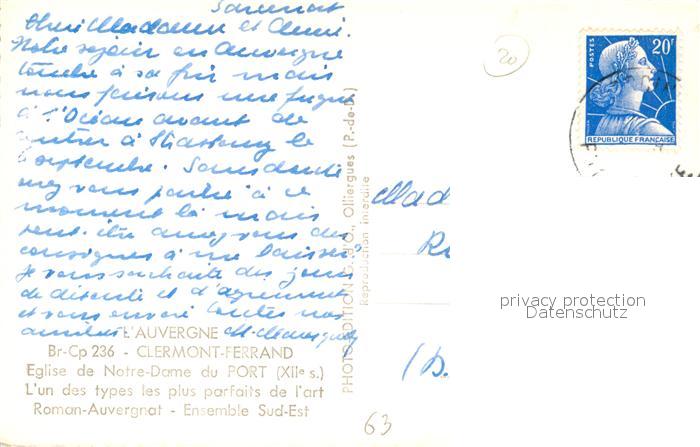 Chère Madame et Amie.
Notre séjour en Auvergne
touche à sa fin mais
nous faisons une fugue
à l'Océan avant de
rentrer à Strasbourg le
septembre. Sans doute
vous
moment là mais
peut être aurez vous des
consignes à me laisser?
Je vous souhaite des jours
de détente et d'agrément
et vous envoie toutes nos
amitiés
L'AUVERGNE
Br-Cp 236 - CLERMONT-FERRAND
Eglise de Notre-Dame du PORT (XIIe s.)
L'un des types les plus parfaits de l'art
Roman-Auvergnat - Ensemble Sud-Est
Olliergues (P.-de-D.)
Reproduction interdite
20
POSTES
20F
REPUBLIQUE FRANÇAISE
Mad
privacy protection
Datenschutz
63